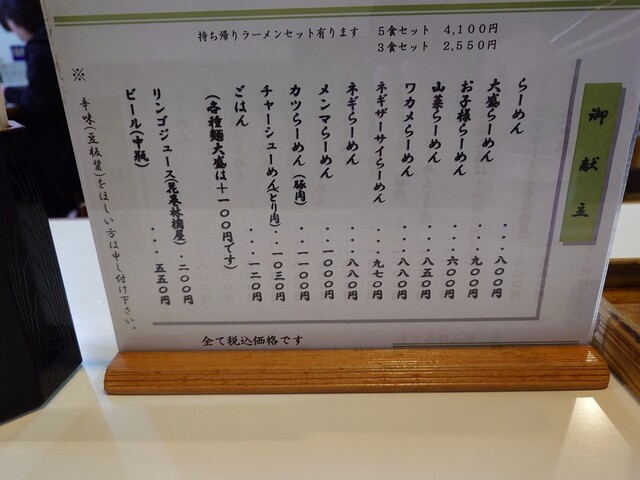 持ち帰りラーメンセット有ります　5食セット　4,100円
3食セット　2,550円
御献立
らーめん・・・八〇〇円
大盛らーめん・・・九〇〇円
お子様らーめん・・・六〇〇円
山菜らーめん・・・八五〇円
ワカメらーめん・・・八八〇円
ネギザーサイらーめん・・・九七〇円
ネギらーめん・・・八八〇円
メンマらーめん・・・一〇〇〇円
カツらーめん（豚肉）・・一一〇〇円
チャーシューめん（とり肉）・・一〇三〇円
ごはん・・・一二〇円
（各種麺大盛は＋一〇〇円です）
リンゴジュース（花巻林檎屋）・二〇〇円
ビール（中瓶）・・・五五〇円
※辛味（豆板醤）をほしい方は申し付け下さい。
全て税込価格です